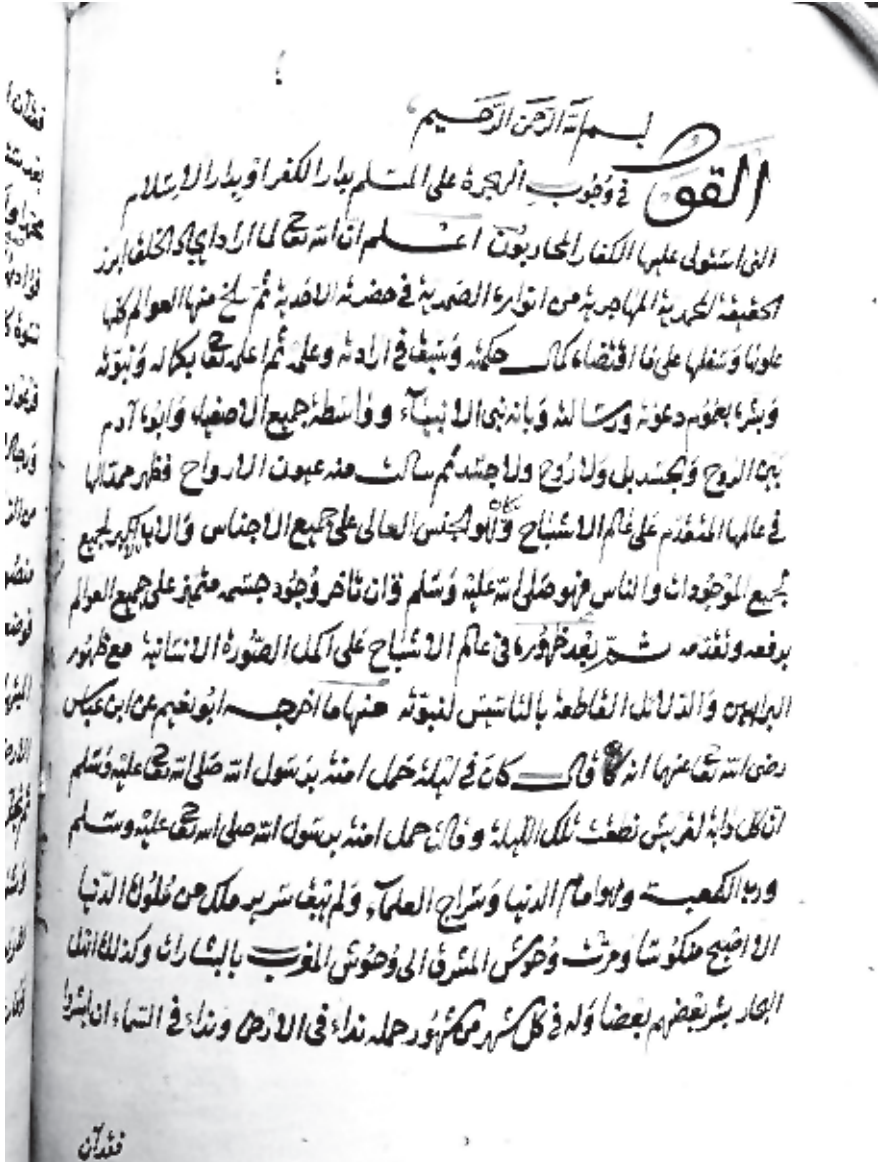 بسم الله الرحمن الرحيم
القول في وجوب الهجرة على المسلم بدار الكفر او بدار الاسلام
التي استولى عليها الكفار المحاربون اعلم ان الله تعالى لما اراد ايجاد الخلق ابرز
الحقيقة المحمدية من انواره الصمدية في حضرته الاحدية ثم سلخ منها العوالم كلها
علوها وسفلها على ما اقتضاه كمال حكمته وسبق في ارادته وعلمه ثم اعلمه تعالى بكماله ونبوته
وبشره بعموم دعوته ورسالته وبانه نبي الانبياء وواسطة جميع الاصفياء وابوه آدم
بين الروح والجسد بل ولا روح ولا جسد ثم سالت منه عيون الارواح فظهر ممدا لها
في عالمها المتقدم على عالم الاشباح وكان هو الجنس العالي على جميع الاجناس والاب الاكبر لجميع
لجميع الموجودات والناس فهو صلى الله عليه وسلم وان تاخر وجود جسمه متميز على جميع العوالم
برفعه وتقدمه ثم بعد ظهوره في عالم الاشباح على اكمل الصورة الانسانية مع ظهور
البراهين والدلائل القاطعة لنبوته منها ما اخرجه ابو نعيم عن ابن عباس
رضى الله تعالى عنهما انه قال كان في ليلة حمل امنة برسول الله صلى الله تعالى عليه وسلم
ان كل دابة لقريش نطقت تلك الليلة وقالت حمل امنة برسول الله صلى الله تعالى عليه وسلم
ورب الكعبة وهو امام الدنيا وسراج العلماء ولم يبق سرير ملك من ملوك الدنيا
الا اصبح منكوسا ومرت وحوش المشرق الى وحوش المغرب بالبشارات وكذلك اهل
البحار بشر بعضهم بعضا وله في كل شهر من شهور حمله نداء في الارض ونداء في السماء ان ابشروا
فقد آن